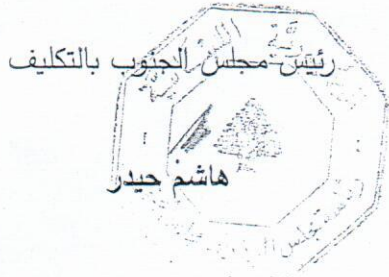 رئيس مجلس الجنوب بالتكليف
هاشم حيدر